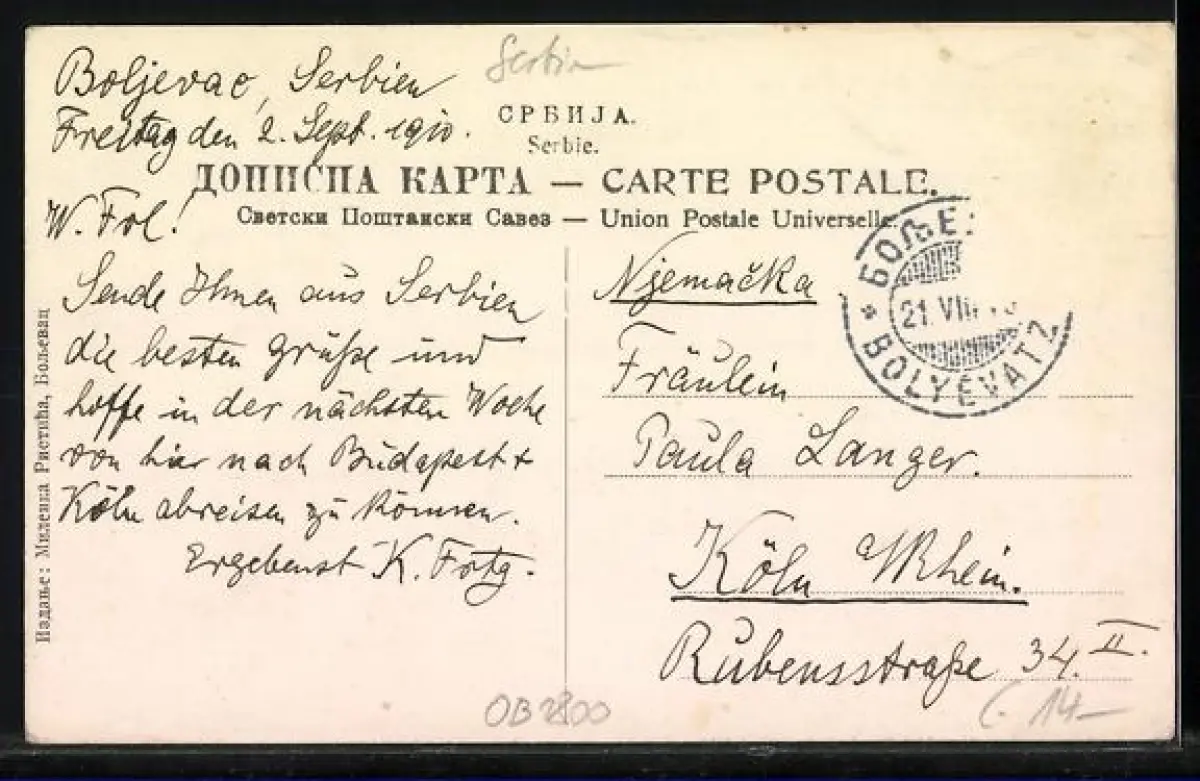 Boljevac, Serbien
Freitag den 2. Sept. 1910.
Serbien
СРБИЈА.
Serbie.
ДОПИСНА КАРТА — CARTE POSTALE.
Светски Поштански Савез — Union Postale Universelle.
W. Frl!
Sende Ihnen aus Serbien
die besten Grüße und
hoffe in der nächsten Woche
von hier nach Budapest +
Köln abreisen zu können.
Ergebenst K.
Njemačka
Fräulein
Paula Langer.
Köln a/Rhein.
Rubensstraße 34. II.
* БОЉЕ
21. VIII.
* BOLYÉVATZ
Издање: Миленка Ристића, Бољевац
OB 2800
14—